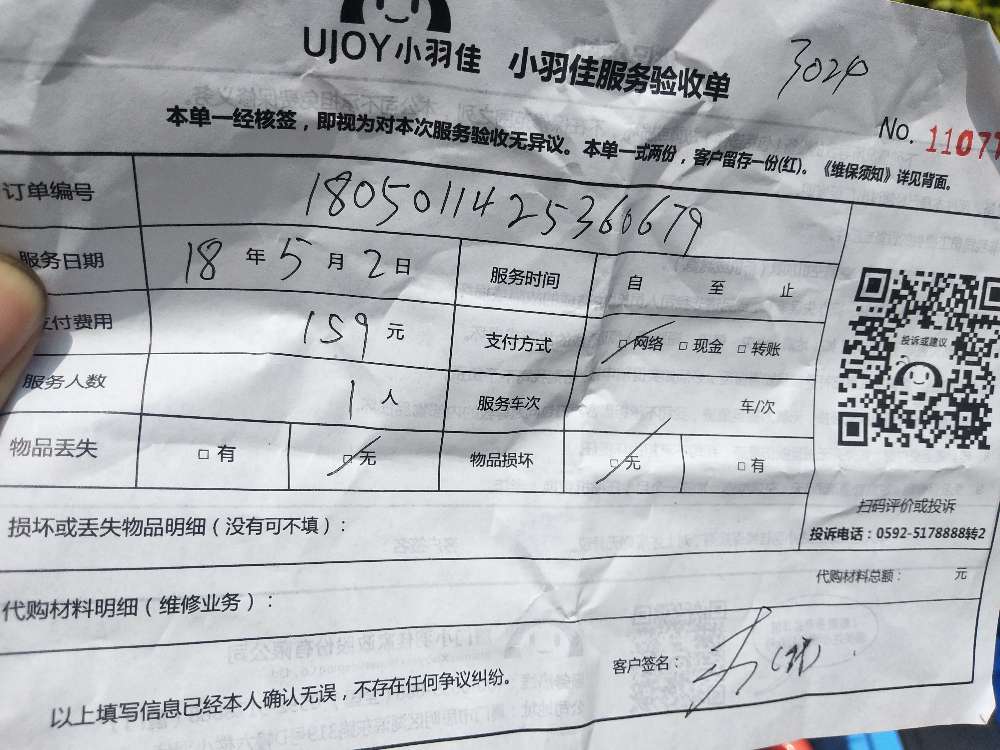 UJOY小羽佳 小羽佳服务验收单 3020
本单一经核签，即视为对本次服务验收无异议。本单一式两份，客户留存一份(红)。《维保须知》详见背面。
No. 11077
订单编号 1805011425360679
服务日期 18年5月2日 服务时间 自 至 止
支付费用 159元 支付方式 □网络 □现金 □转账
服务人数 1人 服务车次 车/次
物品丢失 □有 □无 物品损坏 □无 □有
投诉或建议
扫码评价或投诉
投诉电话：0592-5178888转2
损坏或丢失物品明细（没有可不填）：
代购材料总额： 元
代购材料明细（维修业务）：
客户签名：
以上填写信息已经本人确认无误，不存在任何争议纠纷。